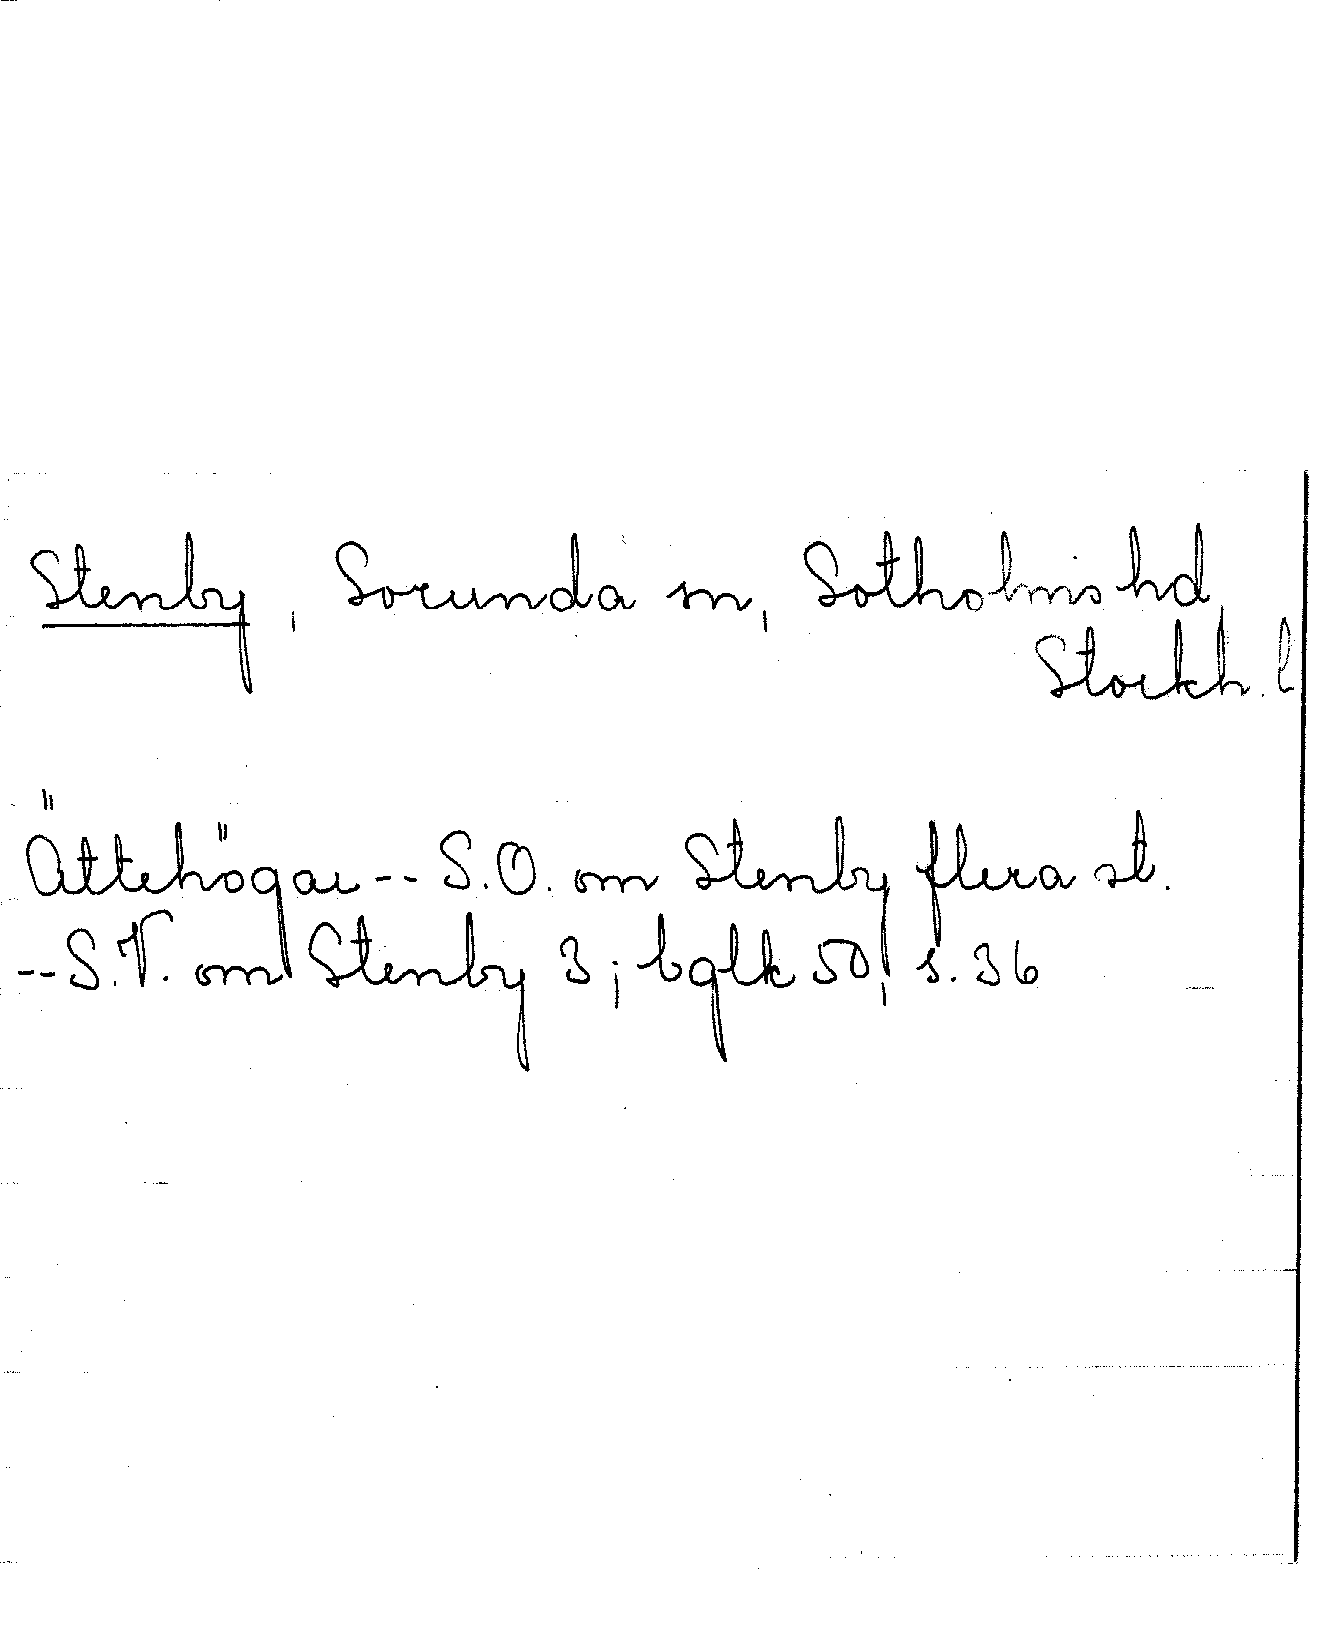 Stenby, Sorunda sn, Sotholms hd,
Stockh. l
Ättehögar -- S.O. om Stenby flera st.
-- S.V. om Stenby 3; bglk 50, s. 36